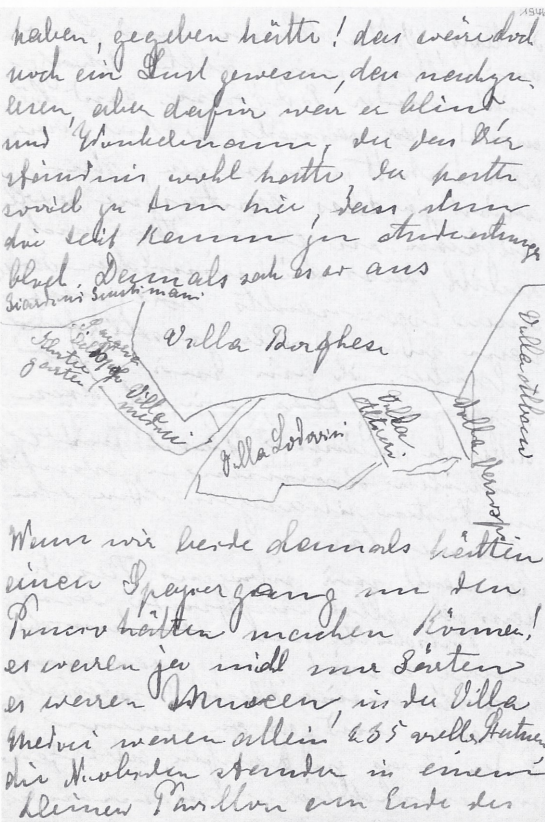 1946
haben, gegeben hätte! das wäre doch
noch ein Lust gewesen, das nachzu-
lesen, aber dafür war er blind
und Winkelmann, der das Ver-
ständnis wohl hatte der hatte
soviel zu tun hier, dass ihm
die Zeit kaum zu
blieb. Damals sah es so aus
Giardini
Villa Borghese
garten
Villa
Medici
Villa Ludovisi
Villa
Altieri
Villa
Villa Albani
Wenn wir beide damals hätten
einen Spaziergang um den
Pincio hätten machen können!
es waren ja nicht nur Gärten
es waren Museen, in der Villa
Medici waren allein 235
die Niobiden standen in einem
kleinen Pavillon am Ende des